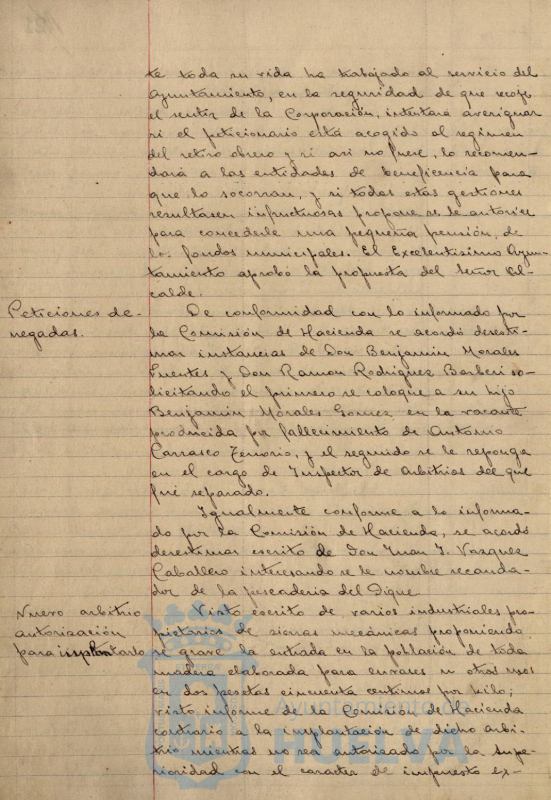 te toda su vida ha trabajado al servicio del
Ayuntamiento, en la seguridad de que recoje
el sentir de la Corporación, intentará averiguar
si el peticionario está acogido al regimen
del retiro obrero y si asi no fuese, lo recomen-
dará a las entidades de beneficencia para
que lo socorran, y si todas estas gestiones
resultasen infructuosas propone se le autorice
para concederle una pequeña pensión, de
los fondos municipales. El Excelentisimo Ayun-
tamiento aprobó la propuesta del Señor Al-
calde.
Peticiones de-
negadas.
De conformidad con lo informado por
la Comisión de Hacienda se acordó desesti-
mar instancias de Don Benjamin Morales
Fuentes y Don Ramon Rodriguez Barberi so-
licitando el primero se coloque a su hijo
Benjamin Morales Gomez en la vacante
producida por fallecimiento de Antonio
Carrasco Tenorio, y el segundo se le reponga
en el cargo de Inspector de arbitrios del que
fué separado.
Igualmente conforme a lo informa-
do por la Comisión de Hacienda, se acordó
desestimar escrito de Don Juan J. Vazquez
Caballero interesando se le nombre recauda-
dor de la pescaderia del Dique
Nuevo arbitrio
autorización
para implantarlo
Visto escrito de varios industriales pro-
pietarios de sierras mecánicas proponiendo
se grave la entrada en la población de toda
madera elaborada para envases u otros usos
en dos pesetas cincuenta centimos por kilo;
visto informe de la Comisión de Hacienda
contrario a la implantación de dicho arbi-
trio mientras no sea autorizado por la Supe-
rioridad con el caracter de impuesto ex-
Ayuntamiento de
HUELVA